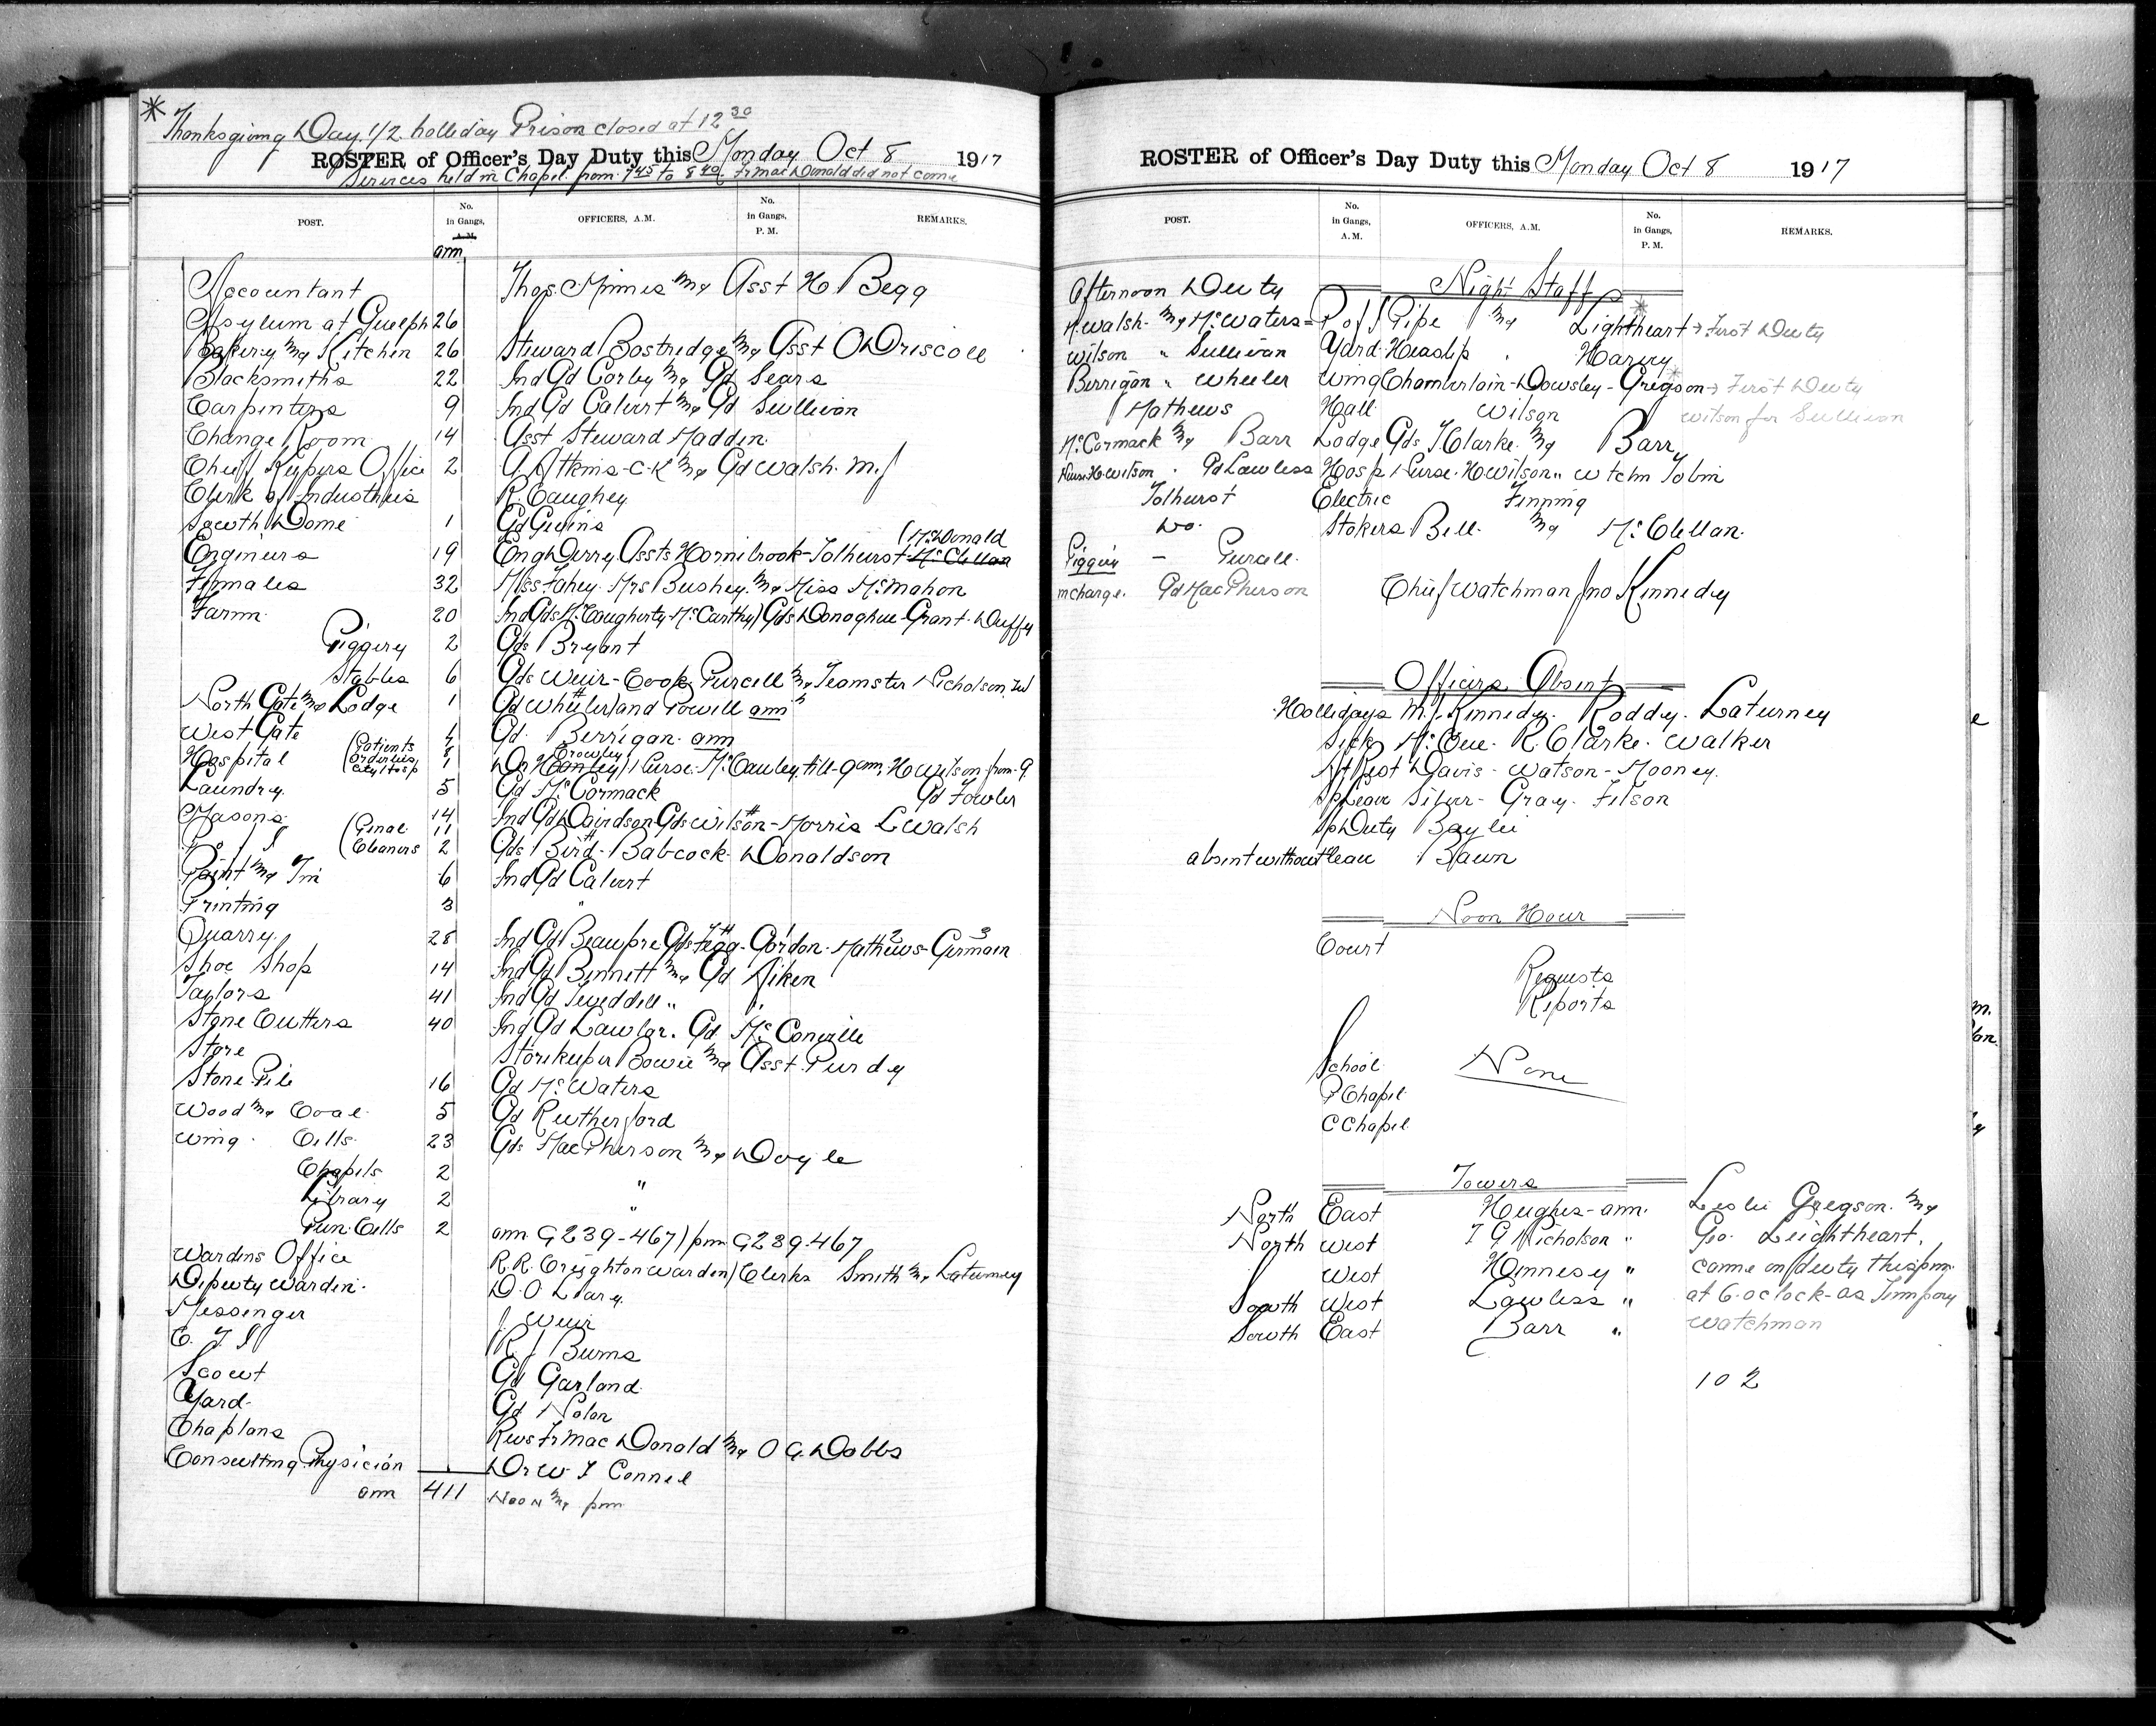 * Thanksgiving Day. 1/2 holliday Prison closed at 12 30
ROSTER of Officer's Day Duty this Monday Oct 8 1917
Services held in Chapel from 7 45 to 8 40. Fr MacDonald did not come
POST. No. in Gangs, A.M. OFFICERS, A.M. No. in Gangs, P. M. REMARKS.
am
Accountant Thos. Minnes & Asst H Begg
Asylum at Guelph 26
Bakery & Kitchen 26 Steward Bostridge & Asst O Driscoll
Blacksmiths 22 Ind Gd Corby & Gd Sears
Carpenters 9 Ind Gd Calvert & Gd Sullivan
Change Room 14 Asst Steward Madden
Chief Kepers Office 2 A. Atkins-C.K & Gd Walsh. M.J
Clerk of Industries R. Caughey
South Dome 1 Gd Givens
(McDonald
Engineers 19 Eng Derry. Assts Hornibrook-Tolhurst-McClellan
Females 32 Miss Fahey. Mrs Bushey. & Miss McMahon
Farm 20 Ind Gds McCaugherty-McCarthy) Gds Donoghue-Grant-Duffy
Piggery 2 Gds Bryant
Stables 6 Gds Weir-Cook Purcell & Teamster Nicholson.
North Gate & Lodge 1 Gd Wheeler) and Powell am
West Gate Gd. Berrigan. am
Hospital (Patients 4 Orderlies 8 City Hosp 1 Nurse. McCauley. till-9 am, H Wilson from-9
Laundry. 5 Gd McCormack Gd Fowler
Masons 14 Ind Gd Davidson Gds Wilson-Morris L Walsh
P of I (Genal 11
Cleaners 2 Gds Bird-Babcock Donaldson
Paint & Tin 6 Ind Gd Calvert
Printing 3 "
Quarry 28 Ind Gd Beaupre Gds Fegg-Gordon-Mathews-Germain
Shoe Shop 14 Ind Gd Bennett & Gd Aiken
Taylors 41 Ind Gd Tweddell " "
Stone Cutters 40 Ind Gd Lawlor. Gd McConville
Store Storekeeper Bowie & Asst Purdy
Stone Pile 16 Gd McWaters
Wood & Coal 5 Gd Rutherford
Wing. Cells 23 Gds MacPherson & Doyle
Chapels 2 "
Library 2 "
Pun. Cells 2 am G239-467) pm G239.467
Wardens Office R.R. Creighton Warden) Clerks Smith & Laturney
Deputy Warden. D. O. Leary.
Messenger J. Weir
R J Burns
Scout Gd Garland
Yard Gd Nolan
Chaplans Revs Fr MacDonald & O G. Dobbs
Consulting Physician Dr W. T Connel
am 411 Noon & pm
ROSTER of Officer's Day Duty this Monday Oct 8 1917
POST. No. in Gangs, A.M. OFFICERS, A.M. No. in Gangs, P. M. REMARKS.
Afternoon Duty Night Staff
Walsh. & McWaters = P of I Pipe & Lightheart * First Duty
Wilson " Sullivan Yard Heaslip Harvey
Berrigan " Wheeler Wing Chamberlain-Dowsley-Gregson * First Duty
Mathews Hall Wilson Wilson for Sullivan
McCormack & Barr Lodge Gds T Clarke. & Barr
Nurse H Wilson. Gd Lawless Hosp Nurse. H Wilson " Wtchm Tobin
Tolhurst Electric Finning
Do. Stokers Bell. & McClellan.
Piggery - Purcell.
in charge. Gd MacPherson Chief Watchman Jno Kennedy
Officers Absent
Hollidays M. J. Kennedy. Roddy. Laturney
Sick McCue. R. Clarke. Walker
Nt Rest Davis-Watson-Mooney.
Sp Leave Silver-Gray. Filson
Sp Duty Baylie
absent without leave Bawn
Noon Hour
Court
Requests
Reports
School None
P Chapel
C Chapel
Towers
North East Hughes-am. Leslie Gregson. &
North West T G Nicholson " Geo. Leightheart.
West Hennesy " came on duty this pm.
South West Lawless " at 6.oclock-as Tempory
South East Barr " Watchman
102